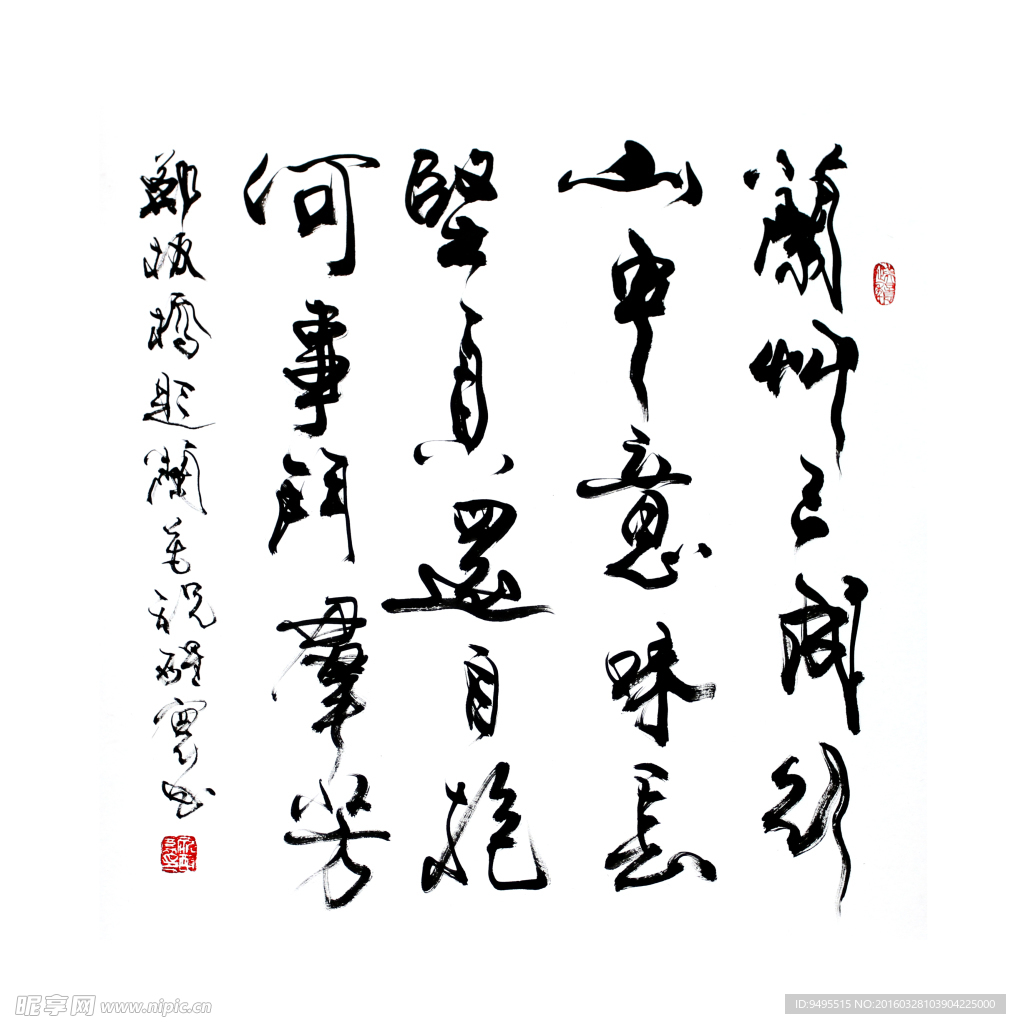 蘭艸已成行
山中意味長
堅貞還自抱
何事鬥羣芳
鄭板橋題蘭
昵享网 www.nipic.cn
ID:9495515 NO:20160328103904225000